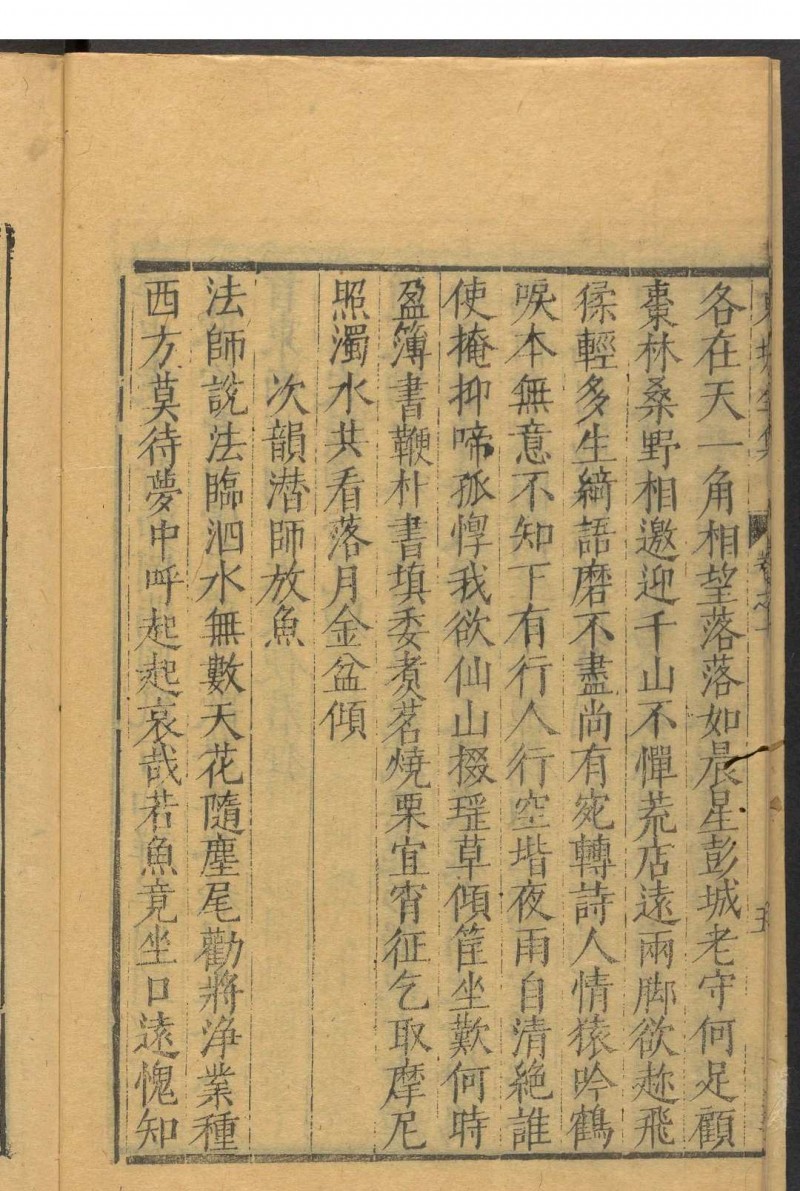 東坡全集　卷之十　五
各在天一角相望落落如晨星彭城老守何足顧
棗林桑野相邀迎千山不憚荒店遠兩脚欲趂飛
猱輕多生綺語磨不盡尚有宛轉詩人情猿吟鶴
唳本無意不知下有行人行空堦夜雨自清絕誰
使掩抑啼孤惸我欲仙山掇瑶草傾筐坐歎何時
盈簿書鞭朴晝填委煑茗燒栗宜宵征乞取摩尼
照濁水共看落月金盆傾
次韻潜師放魚
法師說法臨泗水無數天花隨塵尾勸將净業種
西方莫待夢中呼起起哀哉若魚竟坐口遠愧知